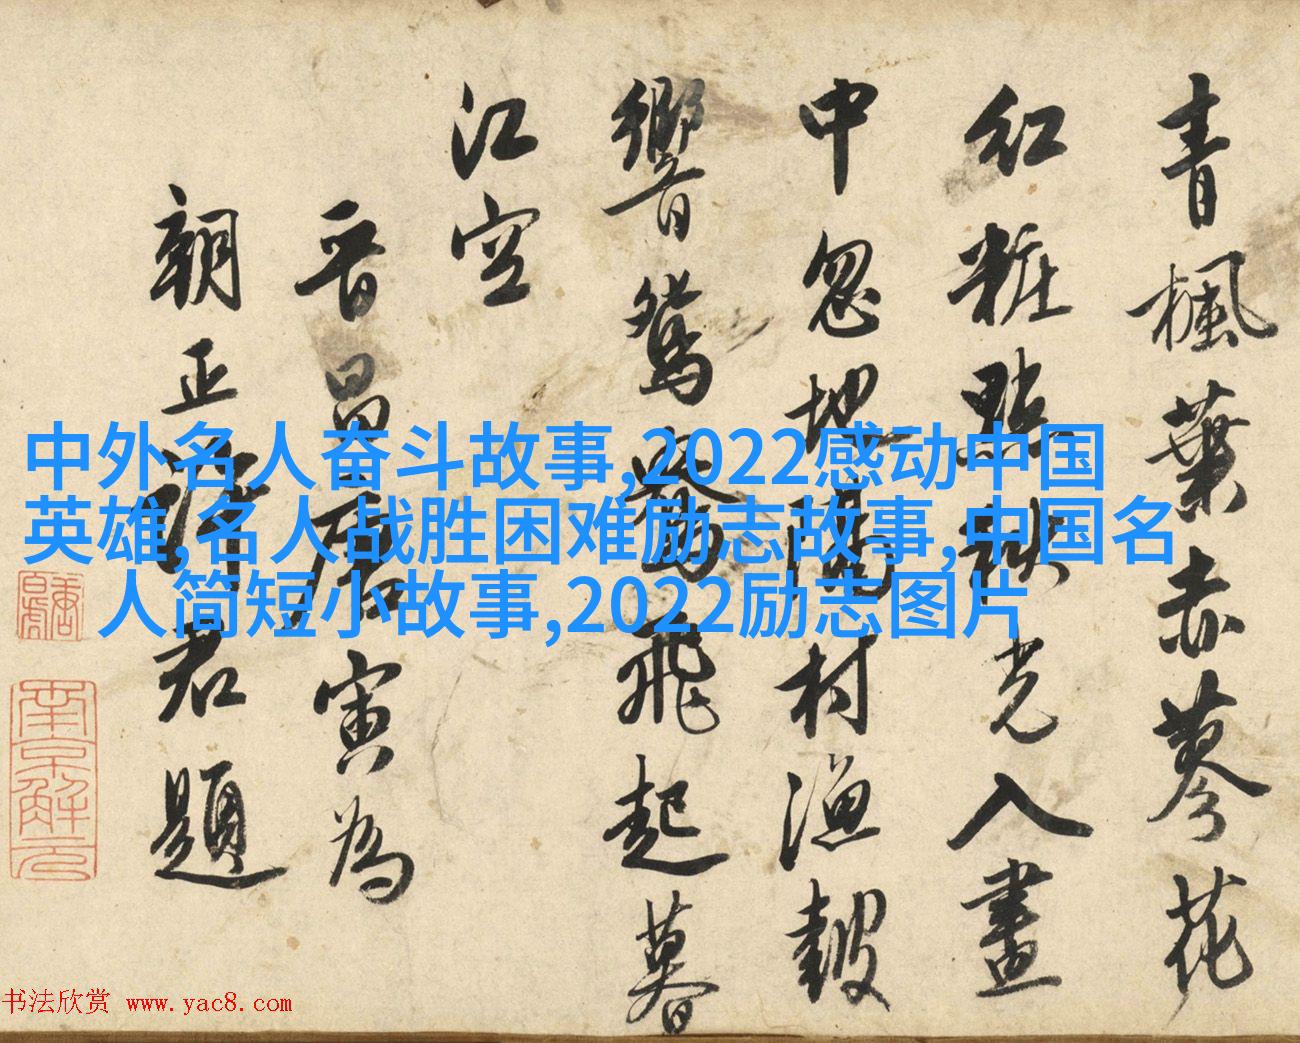 青楓葉赤蓼花
紅粧點秋光入畫
中忽地村漁皷
響鴛鴦飛起暮
江空
晉昌唐寅為
朝正君題
唐白虎
南京解元
中外名人奋斗故事,2022感动中国
英雄,名人战胜困难励志故事,中国名
人简短小故事,2022励志图片
书法欣赏 www.yac8.com